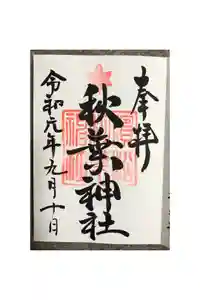 奉拝
秋葉神社
令和元年九月十日